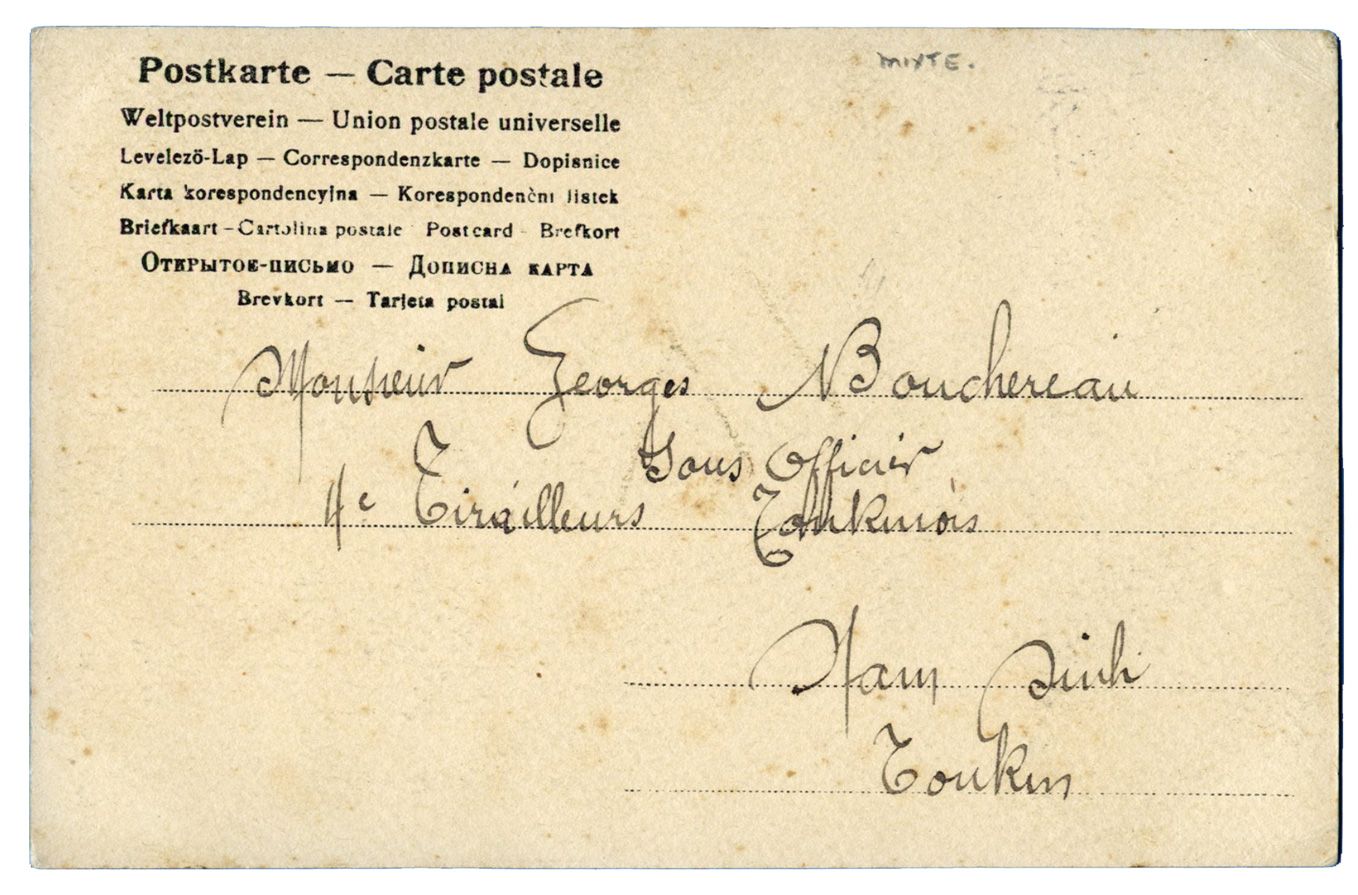 MIXTE.
Postkarte — Carte postale
Weltpostverein — Union postale universelle
Levelező-Lap — Correspondenzkarte — Dopisnice
Karta korespondencyjna — Korespondenční lístek
Briefkaart - Cartolina postale Postcard - Brefkort
Открытое-письмо — Дописна карта
Brevkort — Tarjeta postal
Monsieur Georges Bouchereau
Sous Officier
4e Tirailleurs Tonkinois
Nam Dinh
Tonkin